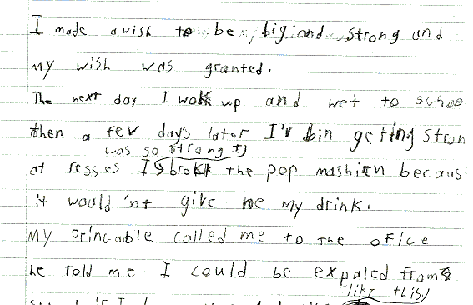 I made a wish to be big and strong and
my wish was granted.
The next day I wolk up and wet to schoe
then a few days later I'v bin getting stron
was so strang I
at resses I broke the pop mashien becaus
it would 'nt give me my drink.
My princable called me to the office
he told me I could be expaled from
like this!